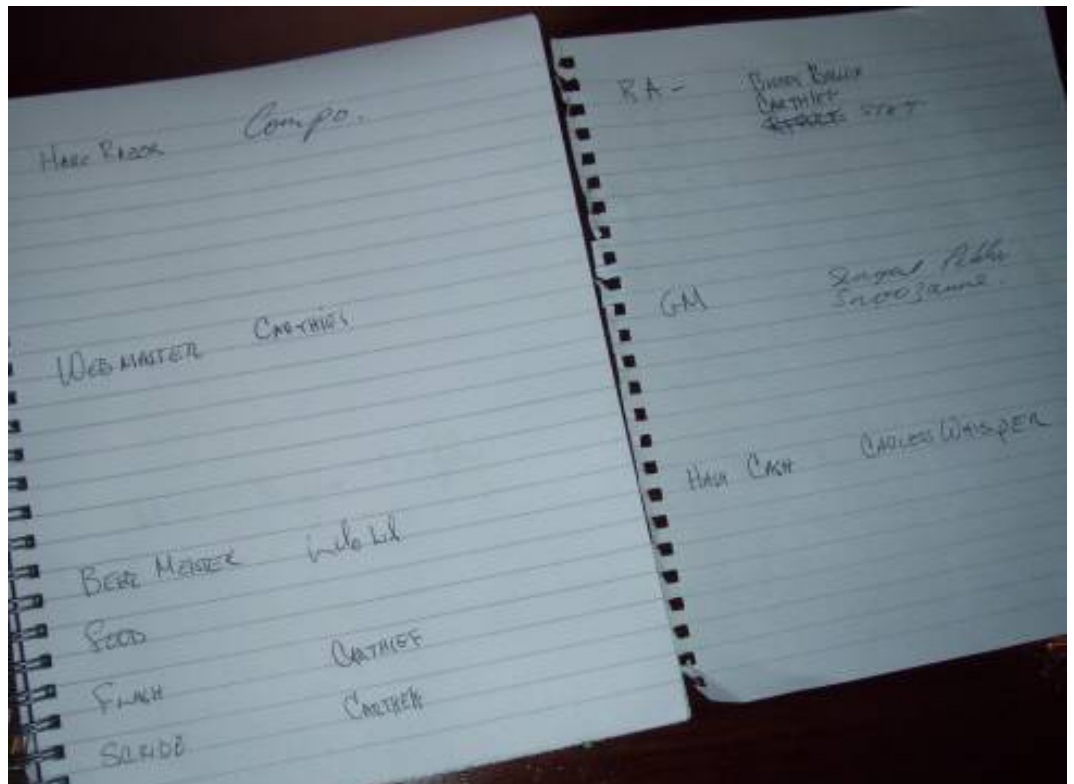 Compo.
HARE RAZOR
WEB MASTER CARTHIEF
BEER MEISTER
FOOD
FLASH CARTHIEF
SCRIBE CARTHIEF
RA -
CARTHIEF
GM
Snoozanne.
HASH CASH CARLESS WHISPER